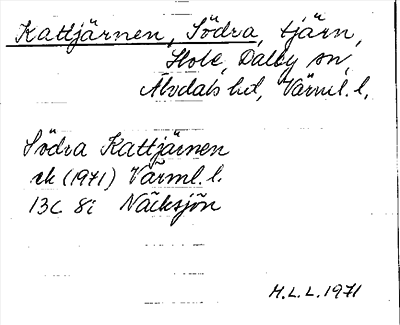 Kattjärnen, Södra, tjärn,
Stole, Dalby sn,
Älvdals hd, Värml. l.
Södra Kattjärnen
ek (1971) Värml. l.
13C 8i Näcksjön
H.L.L. 1971